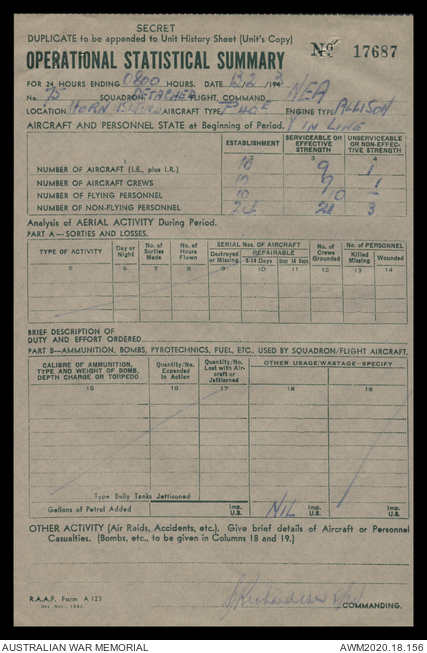 SECRET
DUPLICATE to be appended to Unit History Sheet (Unit's Copy)
OPERATIONAL STATISTICAL SUMMARY
No 17687
FOR 24 HOURS ENDING 0800 HOURS. DATE 13.2.1943
No. 75 SQUADRON DETACHED FLIGHT, COMMAND NEA
LOCATION HORN ISLAND AIRCRAFT TYPE P40E ENGINE TYPE ALLISON
AIRCRAFT AND PERSONNEL STATE at Beginning of Period. V IN LINE
ESTABLISHMENT SERVICEABLE OR EFFECTIVE STRENGTH UNSERVICEABLE OR NON-EFFECTIVE STRENGTH
1 3 4
NUMBER OF AIRCRAFT (I.E., plus I.R.) 10 9 1
NUMBER OF AIRCRAFT CREWS 10 9 1
NUMBER OF FLYING PERSONNEL 10 10 -
NUMBER OF NON-FLYING PERSONNEL 24 21 3
Analysis of AERIAL ACTIVITY During Period.
PART A—SORTIES AND LOSSES.
TYPE OF ACTIVITY Day or Night No. of Sorties Made No. of Hours Flown SERIAL Nos. OF AIRCRAFT No. of Crews Grounded No. of PERSONNEL
Destroyed or Missing REPAIRABLE Killed Missing Wounded
0-14 Days Over 14 Days
5 6 7 8 9 10 11 12 13 14
BRIEF DESCRIPTION OF
DUTY AND EFFORT ORDERED
PART B—AMMUNITION, BOMBS, PYROTECHNICS, FUEL, ETC., USED BY SQUADRON/FLIGHT AIRCRAFT.
CALIBRE OF AMMUNITION, TYPE AND WEIGHT OF BOMB, DEPTH CHARGE OR TORPEDO Quantity/No. Expended in Action Quantity/No. Lost with Aircraft or Jettisoned OTHER USAGE/WASTAGE—SPECIFY
15 16 17 18 19
Type Belly Tanks Jettisoned
Gallons of Petrol Added Imp. U.S. NIL Imp. U.S.
OTHER ACTIVITY (Air Raids, Accidents, etc.). Give brief details of Aircraft or Personnel
Casualties. (Bombs, etc., to be given in Columns 18 and 19.)
Richardson
COMMANDING.
R.A.A.F. Form A 123
AUSTRALIAN WAR MEMORIAL
AWM2020.18.156